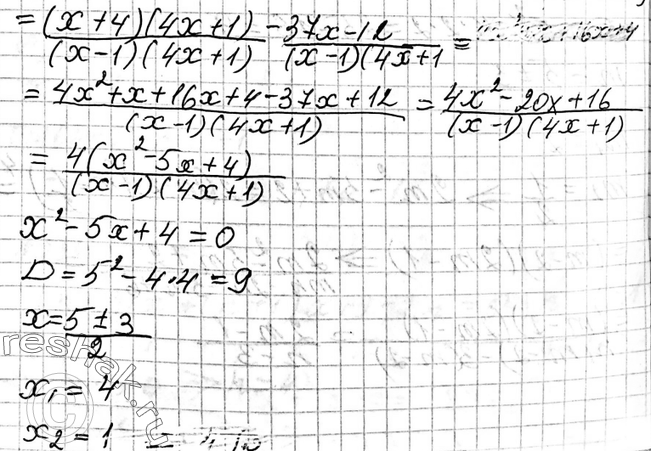 = (x+4)(4x+1)/(x-1)(4x+1) - 37x-12/(x-1)(4x+1 =
= 4x²+x+16x+4-37x+12/(x-1)(4x+1) = 4x²-20x+16/(x-1)(4x+1)
= 4(x²-5x+4)/(x-1)(4x+1)
x²-5x+4=0
D=5²-4·4=9
x=5±3/2
x₁=4
x₂=1
reshak.ru